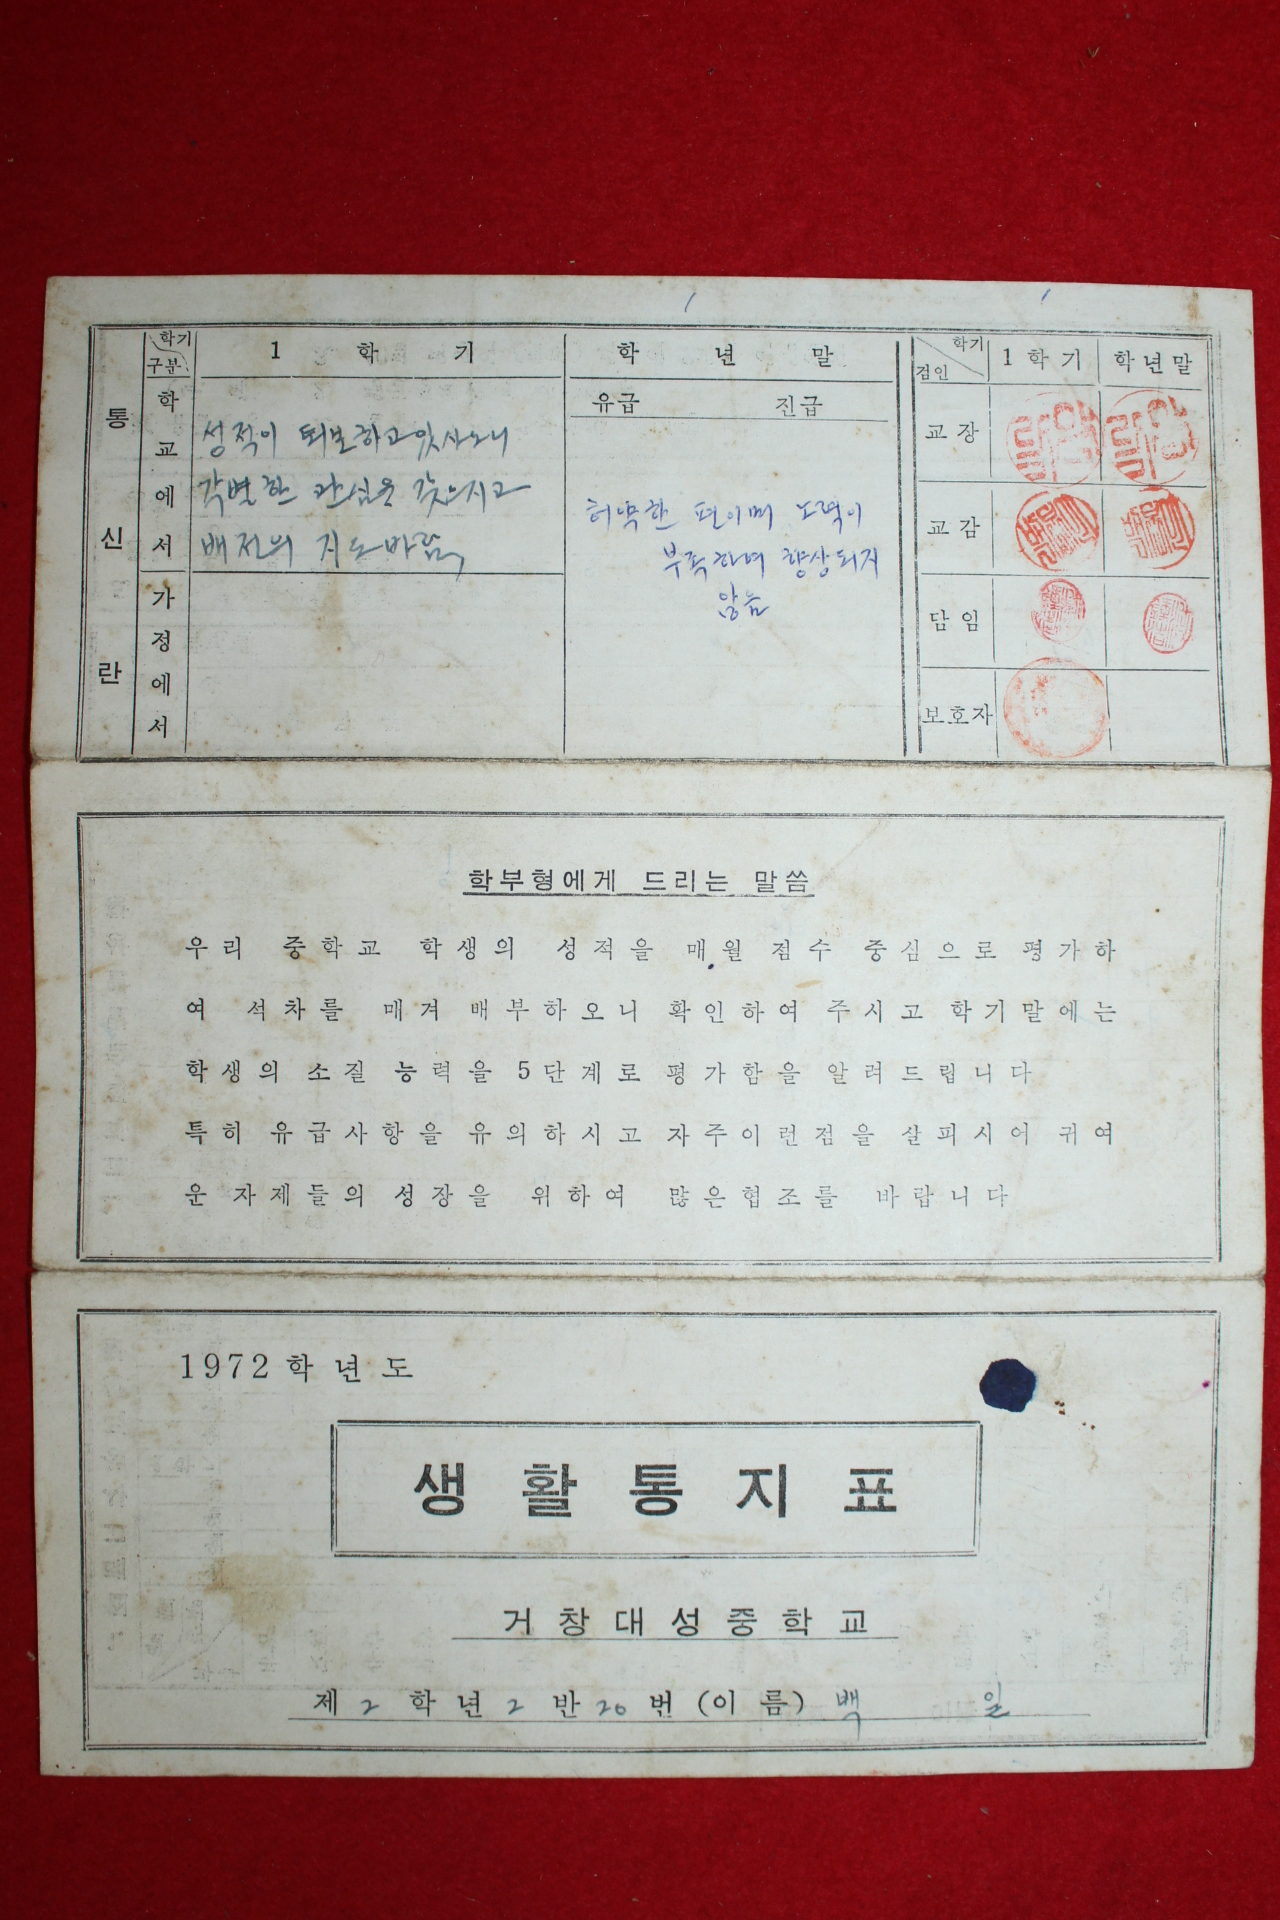 통신란
학기
구분
1 학 기
학 년 말
유급 진급
학교에서
성적이 퇴보하고 있사오니
각별한 관심을 갖으시고
배전의 지도바람
허약한 편이며 노력이
부족하며 향상되지
않음
가정에서
학기
점인
1학기
학년말
교장
교감
담임
보호자
학부형에게 드리는 말씀
우리 중학교 학생의 성적을 매월 점수 중심으로 평가하
여 석차를 매겨 배부하오니 확인하여 주시고 학기말에는
학생의 소질 능력을 5단계로 평가함을 알려드립니다
특히 유급사항을 유의하시고 자주이런점을 살피시어 귀여
운 자제들의 성장을 위하여 많은협조를 바랍니다
1972학년도
생활통지표
거창대성중학교
제 2 학년 2 반 20 번 (이름) 백 일